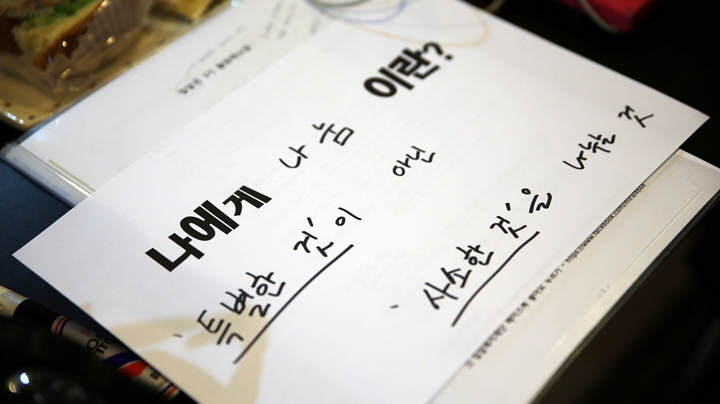 나에게 나눔 이란?
'특별한 것'이 아닌
'사소한 것'을 나누는 것
https://www.facebook.com/